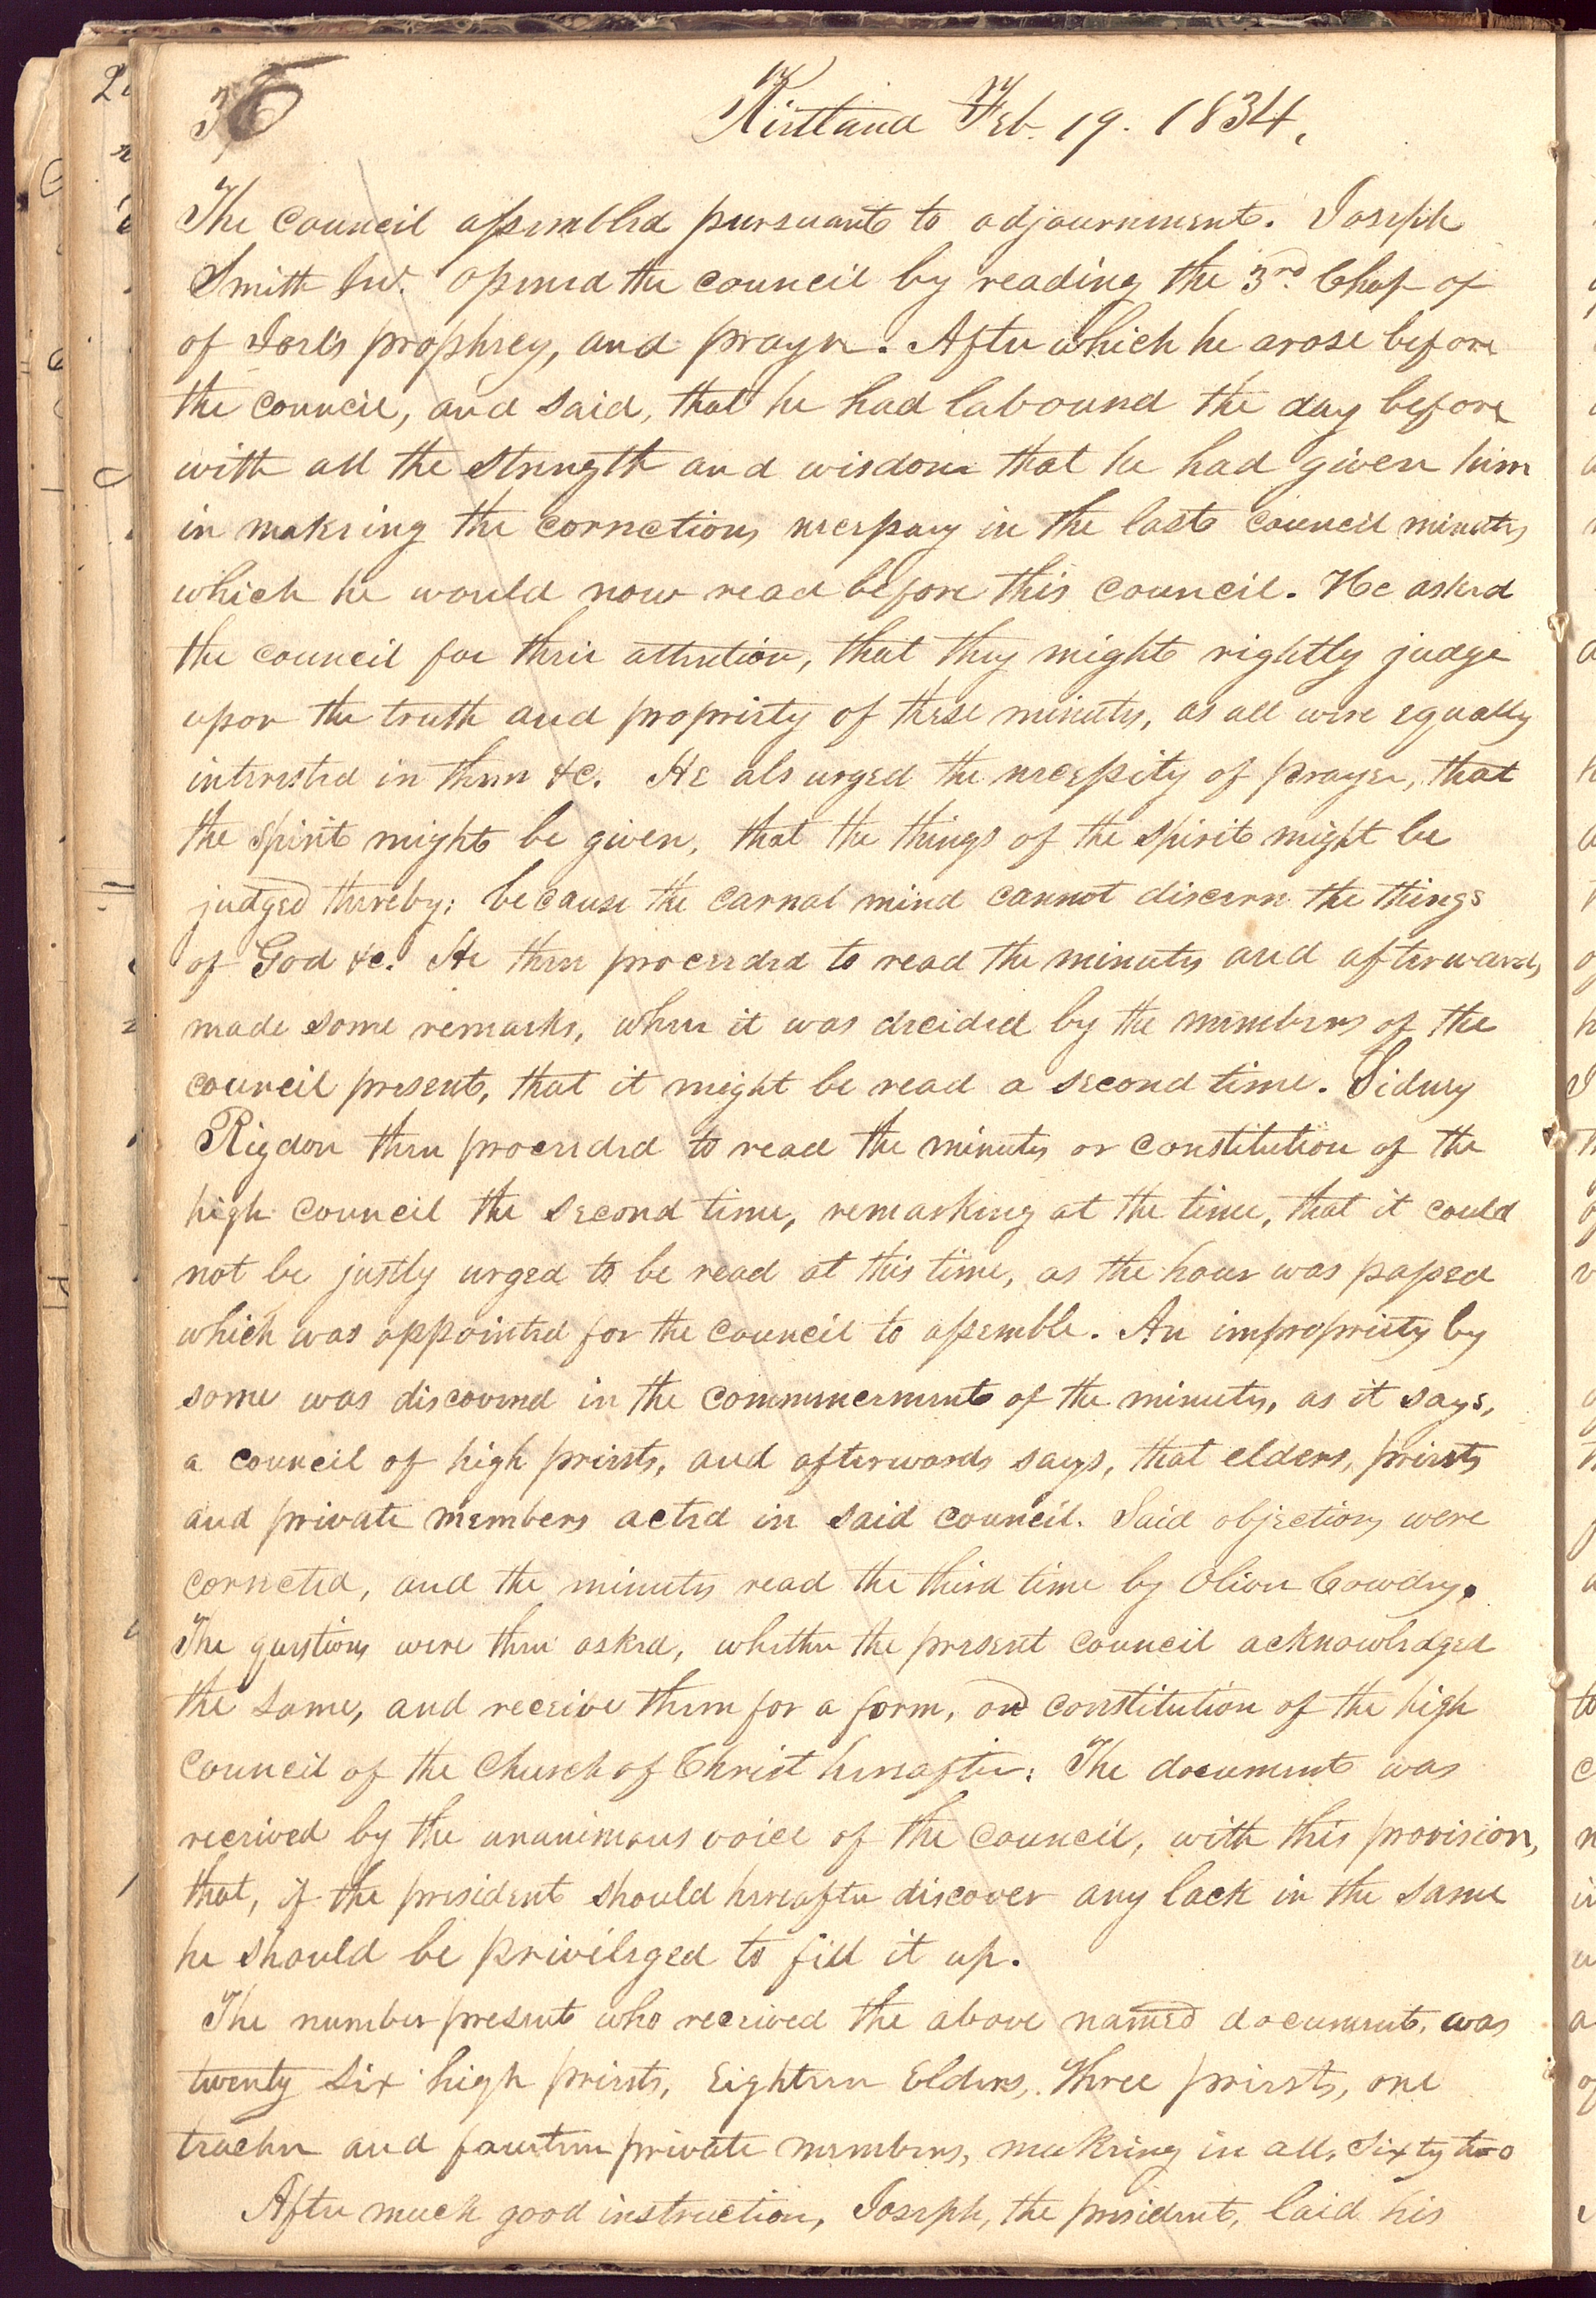 36
Kirtland Feb. 19. 1834.
The council assembled pursuant to adjournment. Joseph
Smith Jun. opened the council by reading the 3rd. Chap of
of Joel's prophecy, and prayer. After which he arose before
the council, and said, that he had labound the day before
with all the strength and wisdom that he had given him
in makeing the corrections necessary in the last council minutes
which he would now read before this council. He asked
the council for their attention, that they might rightly judge
upon the truth and propriety of these minutes, as all were equally
interested in them &c. He als urged the necessity of prayer, that
the spirit might be given, that the things of the spirit might be
judged thereby; because the carnal mind cannot discern the things
of God &c. He then proceeded to read the minutes and afterwards,
made some remarks, when it was decided by the members of the
council present, that it might be read a second time. Sidney
Rigdon then proceeded to read the minutes or constitution of the
high council the second time, remarking at the time, that it could
not be justly urged to be read at this time, as the hour was passed
which was appointed for the council to assemble. An impropriety by
some was discovered in the commencement of the minutes, as it says,
a council of high priests, and afterwards says, that elders, priests
and private members acted in said council. Said objections were
corrected, and the minutes read the third time by Oliver Cowdry.
The questions were then asked, whether the present council acknowledged
the same, and receive them for a form, and constitution of the high
council of the Church of Christ hereafter: The document was
received by the unanimous voice of the council, with this provision,
that, if the president should hereafter discover any lack in the same
he should be privileged to fill it up.
The number present who received the above named document, was
twenty six high priests, Eighteen Elders, Three priests, one
teacher and fourteen private members, makeing in all, Sixty two
After much good instruction, Joseph, the president, laid his